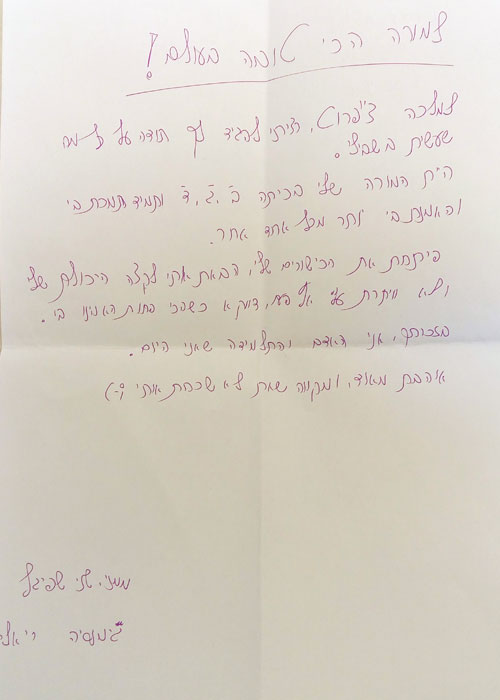 למורה הכי טובה בעולם!
למלכה צ'פרוט, רציתי להגיד לך תודה על כל מה
שעשית בשבילי.
היית המורה שלי בכיתה ב', ג', ד' ותמיד תמכת בי
והאמנת בי יותר מכל אחד אחר.
פיתחת את הכישורים שלי, הבאת אותי לקצה היכולת שלי
ולא וויתרת עלי אף פעם, דווקא כשהכי פחות האמינו בי.
בזכותך, אני האדם והתלמידה שאני היום.
אוהבת מאוד, ומקווה שאת לא שכחת אותי ;-)
ממני, שני שפיגל
גימנסיה ריאלי